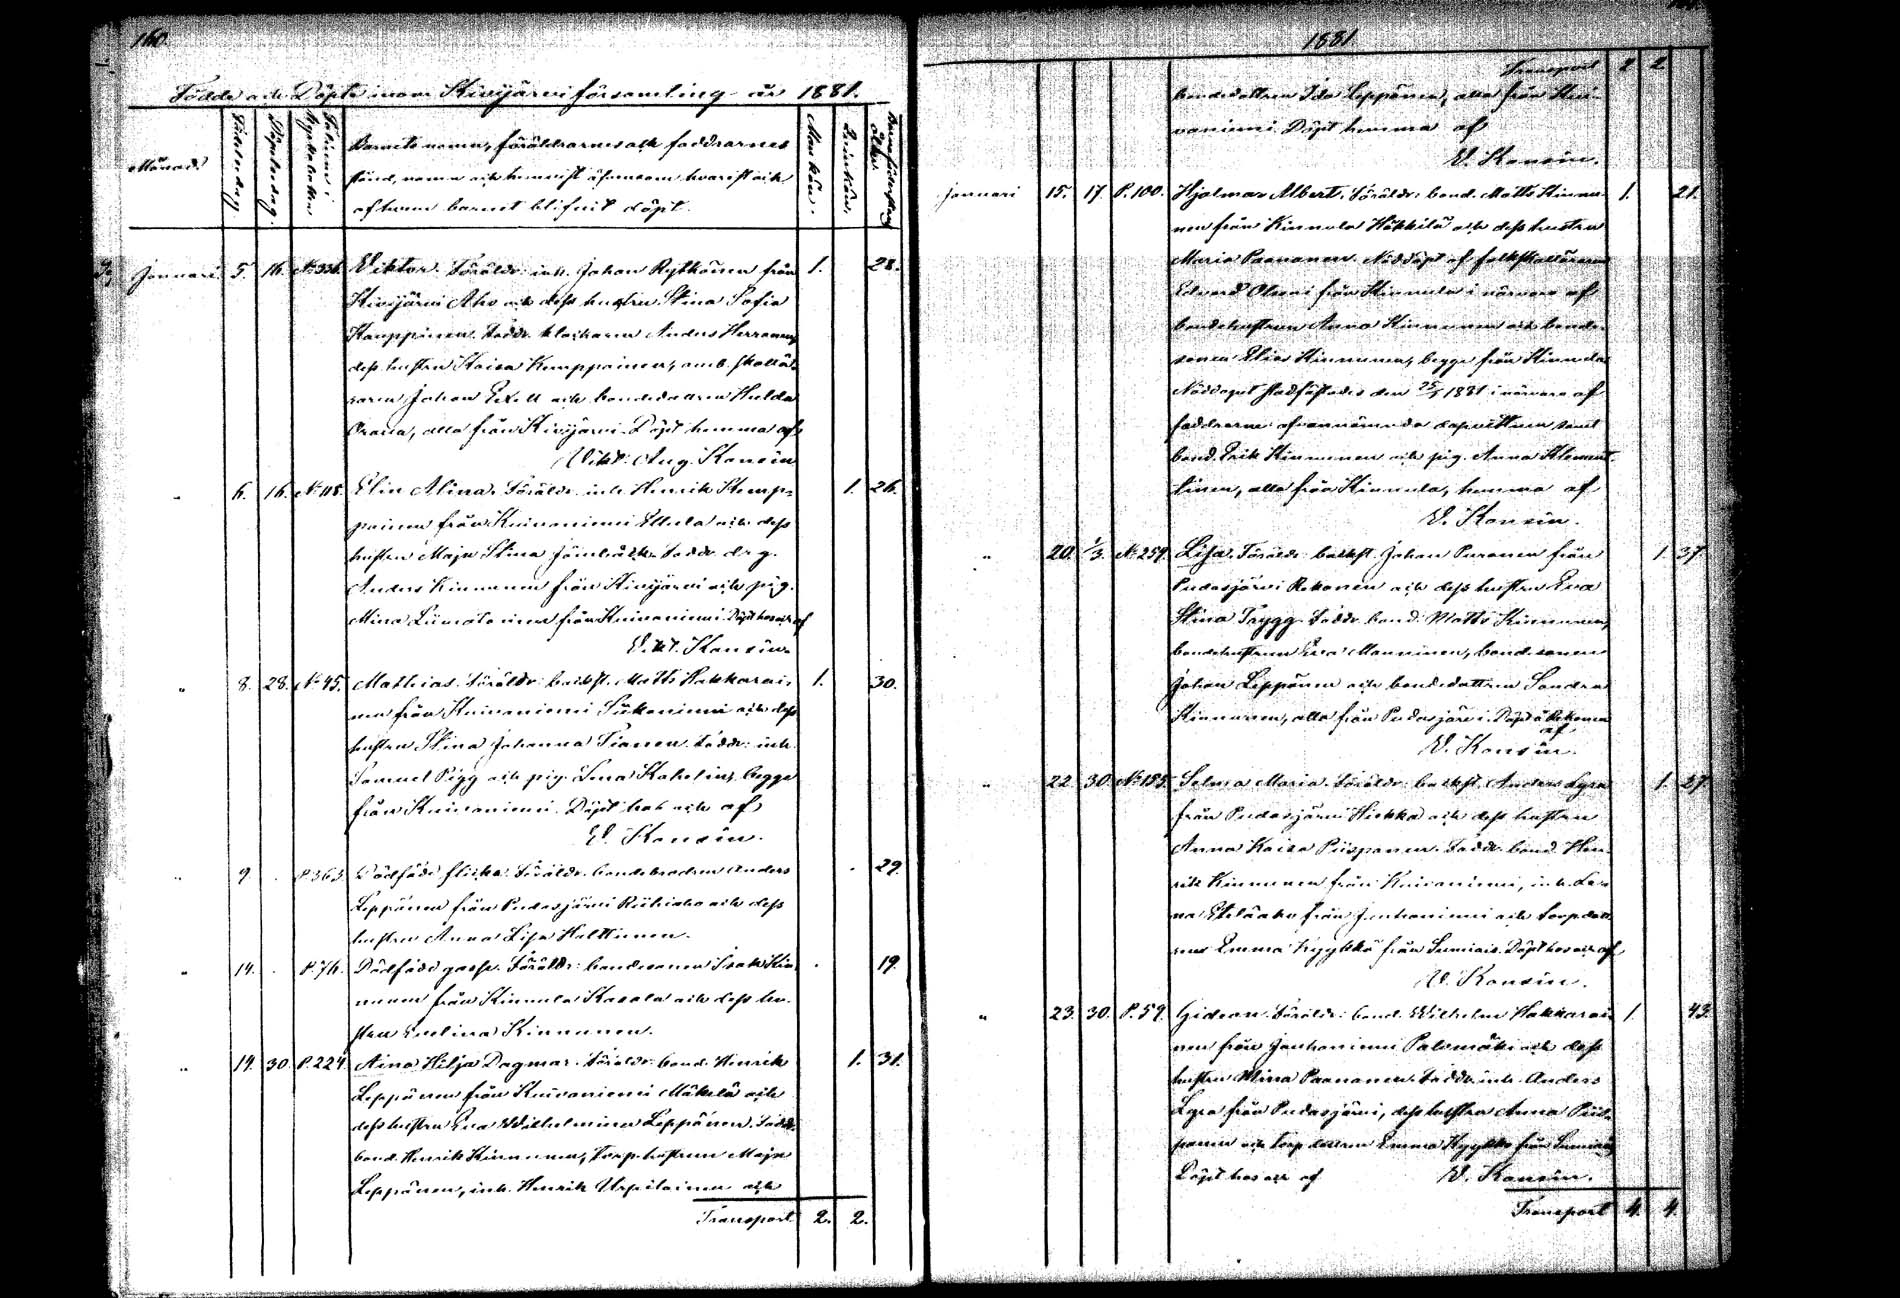 160.
Födde och Döpte inom Kivijärvi församling år 1881.
Månad.
Födelsedag
Döpelsedag.
Barnets namn, föräldrarnes och faddrarnes
stånd, namn och hemvist äfvensom hvarest och
af hvem barnet blifvit döpt.
Mankön.
Qvinkön.
Januari 5. 16. No 336. Viktor. Föräldr: inh. Johan Rytkönen från 1. 28.
Kivijärvi Aho och dess hustru Stina Sofia
Kauppinen. Faddr: klockaren Anders Herranen,
dess hustru Kaisa Kumppainen, amb. skollä-
raren Johan Exell och bondedottren Hulda
Orava, alla från Kivijärvi. Döpt hemma af
Vikt: Aug. Konsin
" 6. 16. No 118. Elin Alina. Föräldr. inh. Henrik Kemp- 1. 26.
painen från Kuivaniemi Ellula och dess
hustru Maja Stina Jämbäck. Faddr. drg.
Anders Kinnunen från Kivijärvi och pig.
Mina Liimatainen från Kuivaniemi. Döpt hos oss af
Vikt. Konsin.
" 8. 28. No 45. Mathias. Föräldr: backst. Matts Hakkarai- 1. 30.
nen från Kuivaniemi Siikaniemi och dess
hustru Stina Johanna Tianen. Faddr: inh.
Samuel Pigg och pig. Lena Kahelin, begge
från Kuivaniemi. Döpt hos oss af
V. Konsin.
" 9. . P. 363. Dödfödd flicka. Föräldr. bondebrodren Anders . 29.
Leppänen från Pudasjärvi Riihiaho och dess
hustru Anna Lisa Halttunen.
" 14. . P. 76. Dödfödd gosse. Föräldr: bondesonen Isak Kin- . 19.
nunen från Kinnula Kasala och dess hu-
stru Evelina Kinnunen.
" 14. 30. P. 224. Aina Hilja Dagmar. Föräldr. bond. Henrik 1. 31.
Leppänen från Kuivaniemi Mäkelä och
dess hustru Eva Wilhelmina Leppänen. Faddr.
bond. Henrik Kinnunen, Torp. hustrun Maja
Leppänen, inh. Henrik Urpilainen och
Transport 2. 2.
1881
Transport 2 2
bondedottren Ida Leppänen, alla från Kui-
vaniemi. Döpt hemma af
V. Konsin.
Januari 15. 17. P. 100. Hjalmar Albert. Föräldr: bond. Matts Kinnu- 1. 21.
nen från Kinnula Häkkilä och dess hustru
Maria Paananen. Nöddöpt af folkskolläraren
Edvard Olsoni från Kinnula i närvaro af
bondehustrun Anna Kinnunen och bonde-
sonen Elias Kinnunen, begge från Kinnula.
Nöddopet stadfästades den 25/1 1881 i närvaro af
faddrarne: ofvannämnda dopvittnen samt
bond. Erik Kinnunen och pig. Anna Klemet-
tinen, alla från Kinnula, hemma af
V. Konsin.
" 20. 1/3. No 259. Lisa. Föräldr: backst. Johan Puranen från 1. 37.
Pudasjärvi Rekonen och dess hustru Eva
Stina Trygg. Faddr. bond: Matts Kinnunen,
bondehustrun Eva Manninen, bond.sonen
Johan Leppänen och bondedottren Sandra
Kinnunen, alla från Pudasjärvi. Döpt å Rekonen
af
V. Konsin.
" 22. 30. No 155. Selma Maria. Föräldr: backst. Anders Lyra 1. 27.
från Pudasjärvi Hiekka och dess hustru
Anna Kaisa Piispanen. Faddr. bond. Hen-
rik Kinnunen från Kuivaniemi, inh. Le-
na Eteläaho från Jauhoniemi och torpdott-
ren Emma Kyykkä från Sumiais. Döpt hos oss af
V. Konsin.
" 23. 30. P. 59. Gideon. Föräldr: bond. Wilhelm Hakkarai- 1. 43.
nen från Jauhoniemi Palomäki och dess
hustru Miina Paananen. Faddr. inh. Anders
Lyra från Pudasjärvi, dess hustru Anna Piis-
panen och torp.dottren Emma Kyykkä från Sumiais.
Döpt hos oss af V. Konsin.
Transport 4. 4.